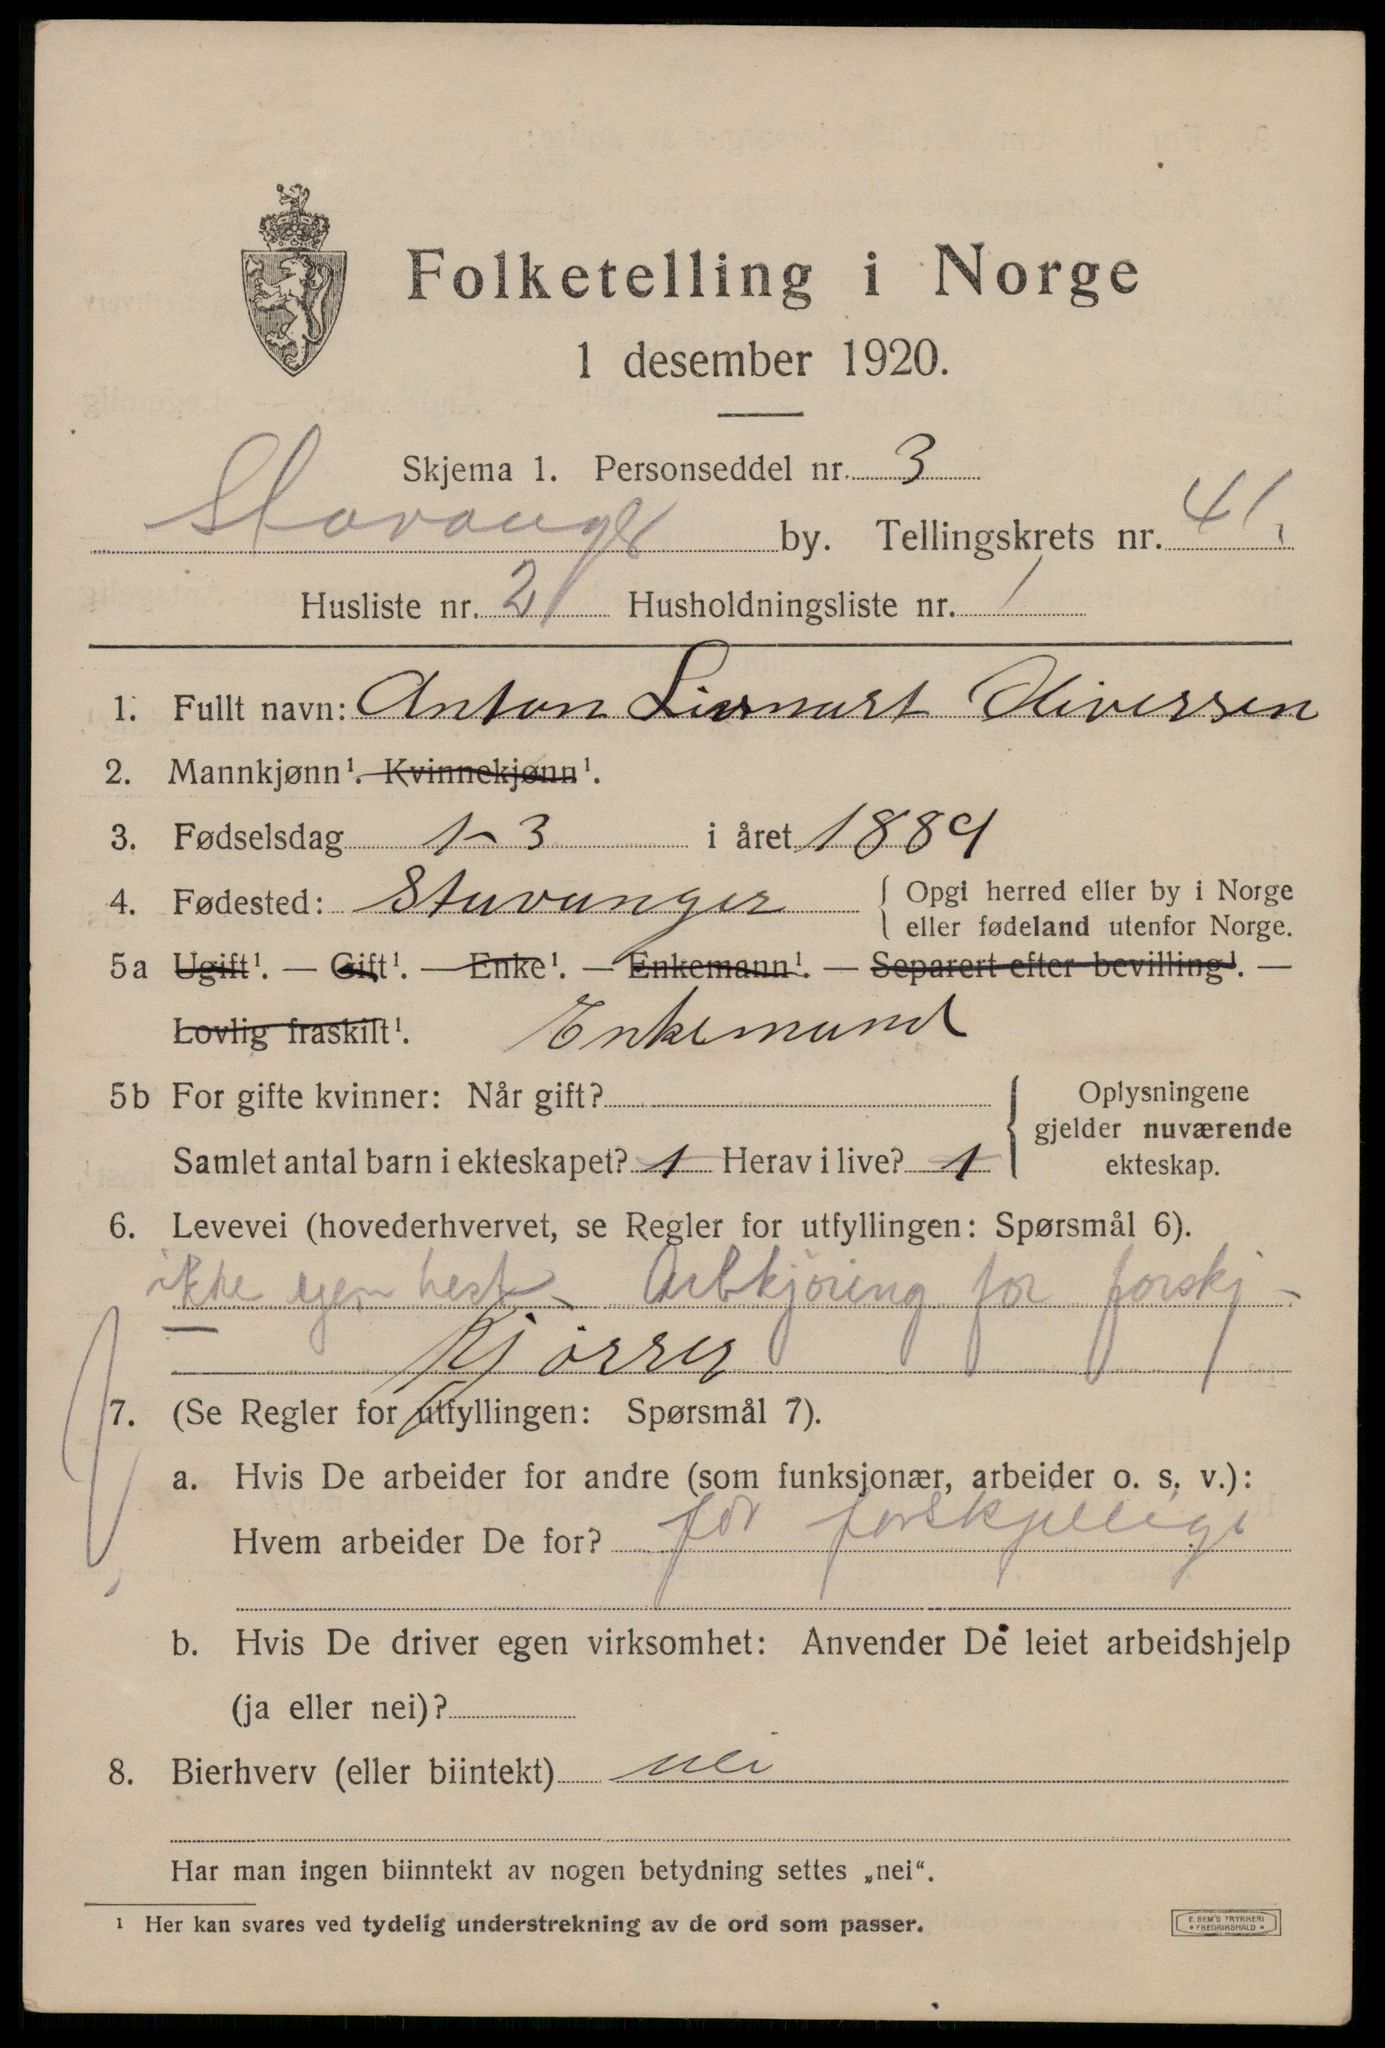 Folketelling i Norge
1 desember 1920.
Skjema 1. Personseddel nr. 3
Stavanger by. Tellingskrets nr. 41.
Husliste nr. 21 Husholdningsliste nr. 1
1. Fullt navn: Anton Oliversen
2. Mannkjønn¹. Kvinnekjønn¹.
3. Fødselsdag 1-3 i året 1889
4. Fødested: Stavanger { Opgi herred eller by i Norge
eller fødeland utenfor Norge.
5a Ugift¹. — Gift¹. — Enke¹. — Enkemann¹. — Separert efter bevilling¹. —
Lovlig fraskilt¹. Enkemand
5b For gifte kvinner: Når gift? { Oplysningene
gjelder nuværende
Samlet antal barn i ekteskapet? 1 Herav i live? 1 ekteskap.
6. Levevei (hovederhvervet, se Regler for utfyllingen: Spørsmål 6).
ikke egen hest - Arbkjöring for forskj -
Kjörrer
7. (Se Regler for utfyllingen: Spørsmål 7).
a. Hvis De arbeider for andre (som funksjonær, arbeider o. s. v.):
Hvem arbeider De for? for forskjellige
b. Hvis De driver egen virksomhet: Anvender De leiet arbeidshjelp
(ja eller nei)?
8. Bierhverv (eller biintekt) nei
Har man ingen biinntekt av nogen betydning settes „nei“.
¹ Her kan svares ved tydelig understrekning av de ord som passer.
E. SEM'S TRYKKERI
FREDRIKSHALD